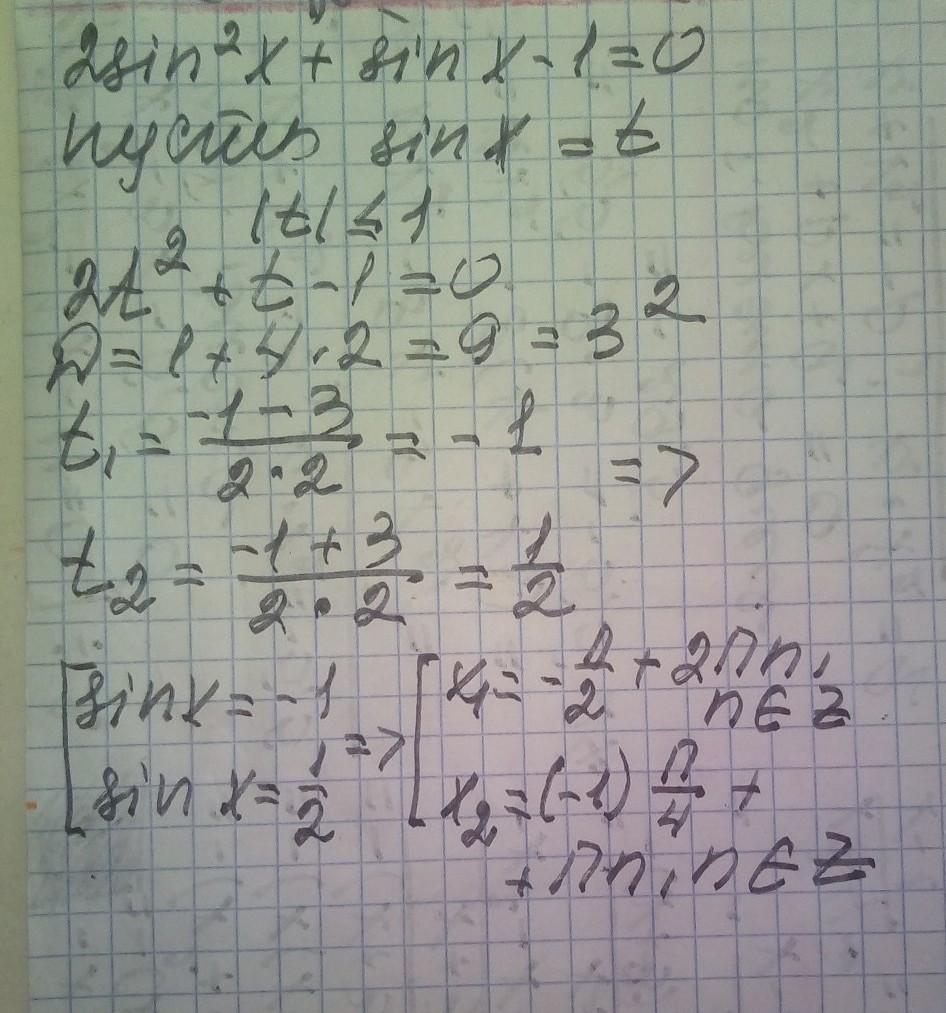 2sin²x + sin x - 1 = 0
пусть sin x = t
|t| ≤ 1
2t² + t - 1 = 0
D = 1 + 4·2 = 9 = 3²
t₁ = (-1 - 3)/(2·2) = -1
=>
t₂ = (-1 + 3)/(2·2) = 1/2
[sin x = -1 => [x₁ = -π/2 + 2πn, n ∈ Z
sin x = 1/2 x₂ = (-1) π/4 +
+ πn, n ∈ Z